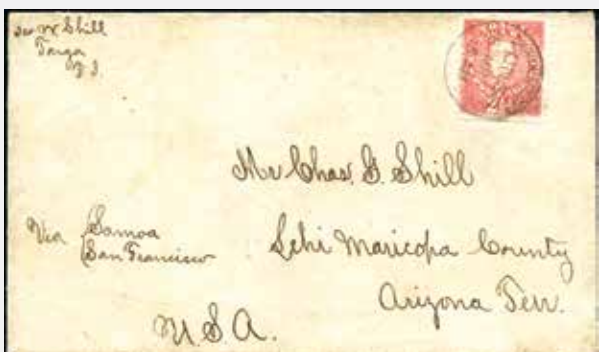 Shill
Tonga
Mr Chas. G. Shill
Via Samoa
San Francisco
Lehi Maricopa County
Arizona Terr.
U S A.